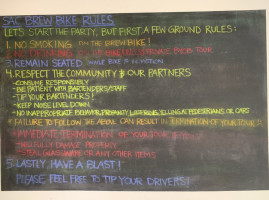 SAC BREW BIKE RULES
LET'S START THE PARTY, BUT FIRST A FEW GROUND RULES:
1. NO SMOKING ON THE BREW BIKE!
2. NO DRINKING
3. REMAIN SEATED WHILE BIKE IS IN MOTION
4. RESPECT THE COMMUNITY & OUR PARTNERS
-CONSUME RESPONSIBLY
-BE PATIENT WITH BARTENDERS/STAFF
-TIP YOUR BARTENDERS!
-KEEP NOISE LEVEL DOWN
-NO INAPPROPRIATE BEHAVIOR, PROFANITY, LITTERING, YELLING AT PEDESTRIANS OR CARS
*FAILURE TO FOLLOW THE ABOVE CAN RESULT IN TERMINATION OF YOUR TOUR
IMMEDIATE TERMINATION OF YOUR TOUR
-WILLFULLY DAMAGE PROPERTY
-STEAL GLASSWARE OR ANY OTHER ITEMS
5. LASTLY, HAVE A BLAST!
PLEASE FEEL FREE TO TIP YOUR DRIVERS!